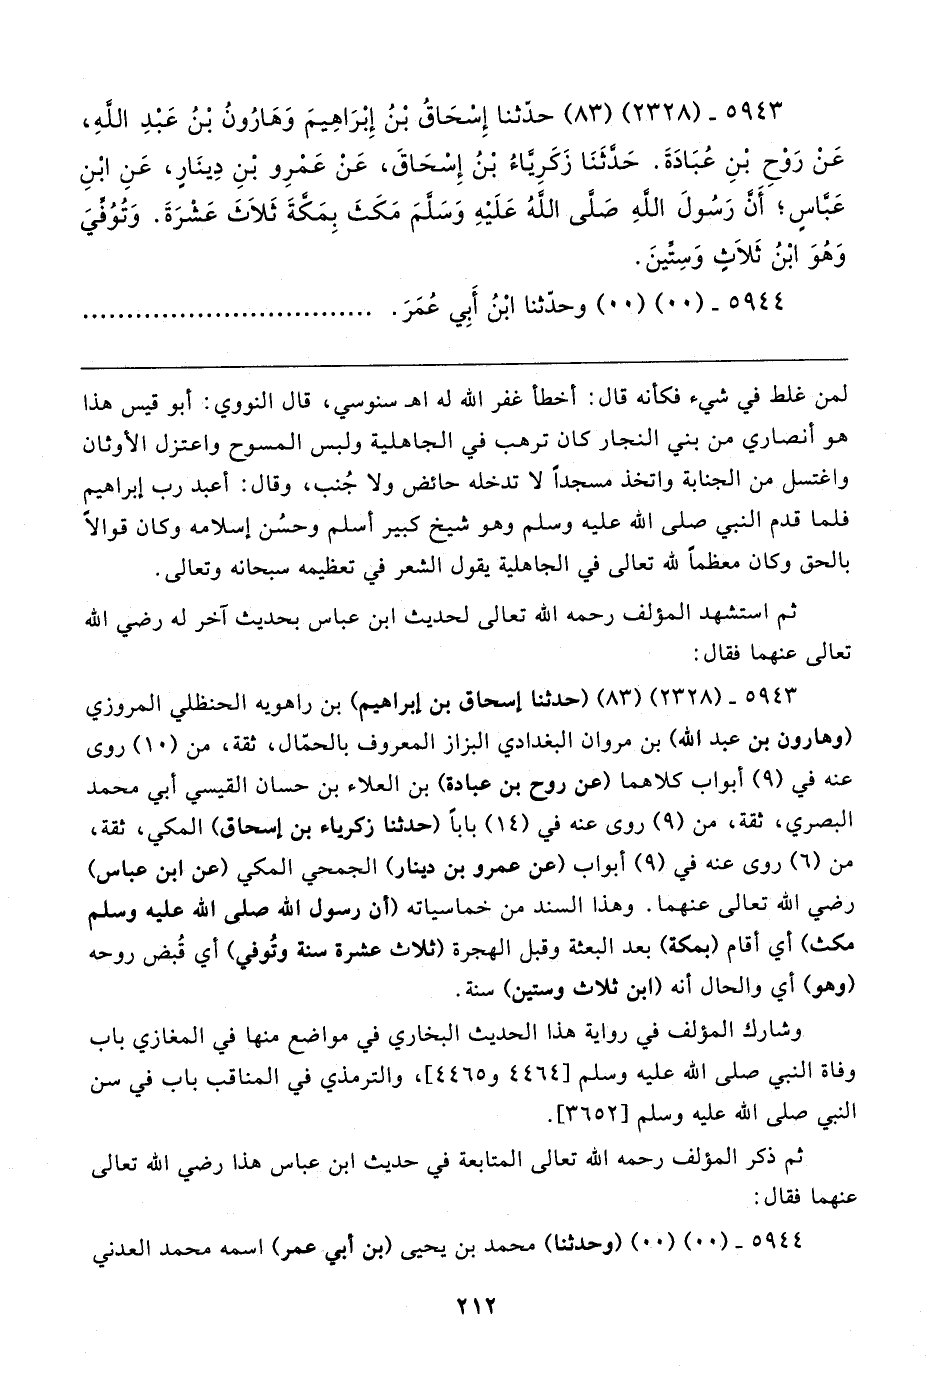 ٥٩٤٣ ـ (٢٣٢٨) (٨٣) حدّثنا إِسْحَاقُ بْنُ إِبْرَاهِيمَ وَهَارُونُ بْنُ عَبْدِ اللَّهِ،
عَنْ رَوْحِ بْنِ عُبَادَةَ. حَدَّثَنَا زَكَرِيَّاءُ بْنُ إِسْحَاقَ، عَنْ عَمْرِو بْنِ دِينَارٍ، عَنِ ابْنِ
عَبَّاسٍ؛ أَنَّ رَسُولَ اللَّهِ صَلَّى اللَّهُ عَلَيْهِ وَسَلَّمَ مَكَثَ بِمَكَّةَ ثَلاَثَ عَشْرَةَ. وَتُوُفِّيَ
وَهُوَ ابْنُ ثَلاَثٍ وَسِتِّينَ.
٥٩٤٤ ـ (٠٠) (٠٠) وحدّثنا ابْنُ أَبِي عُمَرَ. ................................
لمن غلط في شيء فكأنه قال: أخطأ غفر الله له اهـ سنوسي، قال النووي: أبو قيس هذا
هو أنصاري من بني النجار كان ترهب في الجاهلية ولبس المسوح واعتزل الأوثان
واغتسل من الجنابة واتخذ مسجداً لا تدخله حائض ولا جُنب، وقال: أعبد رب إبراهيم
فلما قدم النبي صلى الله عليه وسلم وهو شيخ كبير أسلم وحسُن إسلامه وكان قوالاً
بالحق وكان معظماً لله تعالى في الجاهلية يقول الشعر في تعظيمه سبحانه وتعالى.
ثم استشهد المؤلف رحمه الله تعالى لحديث ابن عباس بحديث آخر له رضي الله
تعالى عنهما فقال:
٥٩٤٣ ـ (٢٣٢٨) (٨٣) (حدثنا إسحاق بن إبراهيم) بن راهويه الحنظلي المروزي
(وهارون بن عبد الله) بن مروان البغدادي البزاز المعروف بالحمّال، ثقة، من (١٠) روى
عنه في (٩) أبواب كلاهما (عن روح بن عبادة) بن العلاء بن حسان القيسي أبي محمد
البصري، ثقة، من (٩) روى عنه في (١٤) باباً (حدثنا زكرياء بن إسحاق) المكي، ثقة،
من (٦) روى عنه في (٩) أبواب (عن عمرو بن دينار) الجمحي المكي (عن ابن عباس)
رضي الله تعالى عنهما. وهذا السند من خماسياته (أن رسول الله صلى الله عليه وسلم
مكث) أي أقام (بمكة) بعد البعثة وقبل الهجرة (ثلاث عشرة سنة وتُوفي) أي قُبض روحه
(وهو) أي والحال أنه (ابن ثلاث وستين) سنة.
وشارك المؤلف في رواية هذا الحديث البخاري في مواضع منها في المغازي باب
وفاة النبي صلى الله عليه وسلم [٤٤٦٤ و٤٤٦٥]، والترمذي في المناقب باب في سن
النبي صلى الله عليه وسلم [٣٦٥٢].
ثم ذكر المؤلف رحمه الله تعالى المتابعة في حديث ابن عباس هذا رضي الله تعالى
عنهما فقال:
٥٩٤٤ ـ (٠٠) (٠٠) (وحدثنا) محمد بن يحيى (بن أبي عمر) اسمه محمد العدني
٢١٢